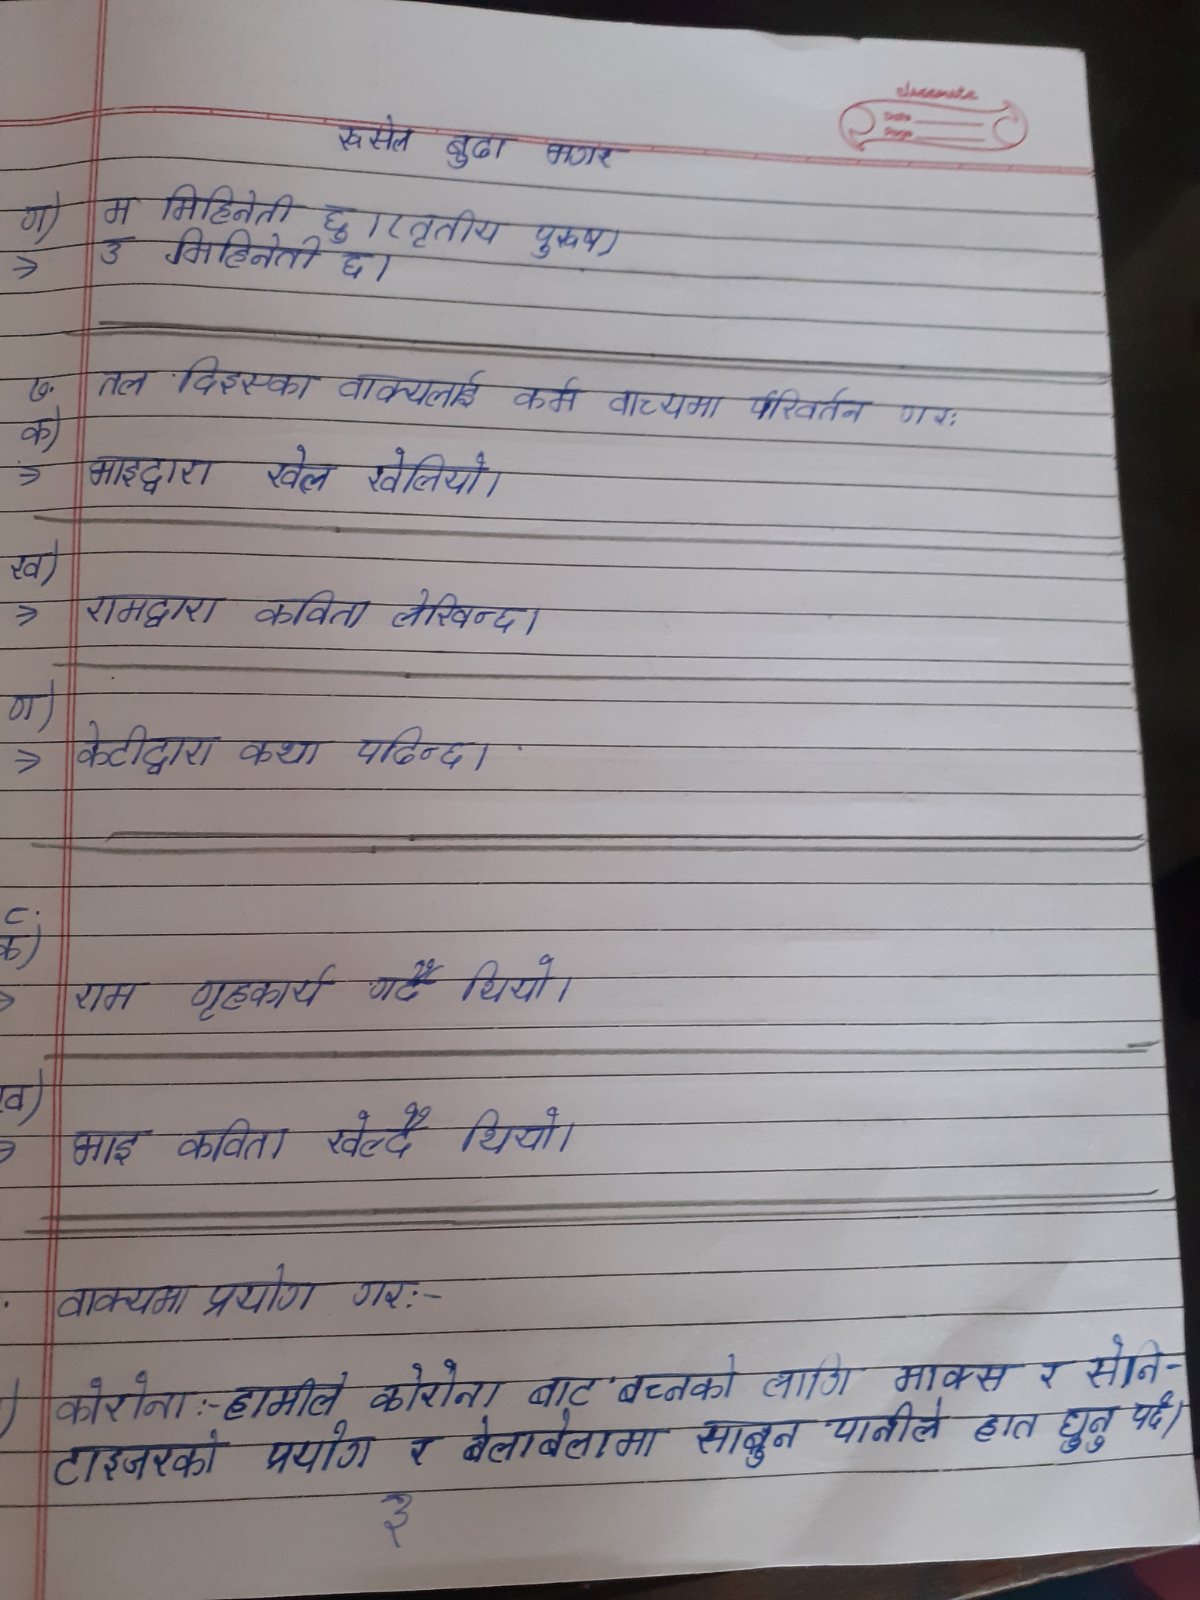 classmate
Date
Page
रुसेल बुढा मगर
ग) म मिहिनेती छु। (तृतीय पुरुष)
⇒ उ मिहिनेती छ।
७. तल दिइएका वाक्यलाई कर्म वाच्यमा परिवर्तन गर:
क)
⇒ भाइद्वारा खेल खेलियो।
ख)
⇒ रामद्वारा कविता लेखिन्छ।
ग)
⇒ केटीद्वारा कथा पढिन्छ।
८.
क)
⇒ राम गृहकार्य गर्दै थियो।
ख)
⇒ भाइ कविता खेल्दै थियो।
वाक्यमा प्रयोग गर:-
कोरोना:- हामीले कोरोना बाट बच्नको लागि माक्स र सेनि-
टाइजरको प्रयोग र बेलाबेलामा साबुन पानीले हात धुनु पर्छ।
३